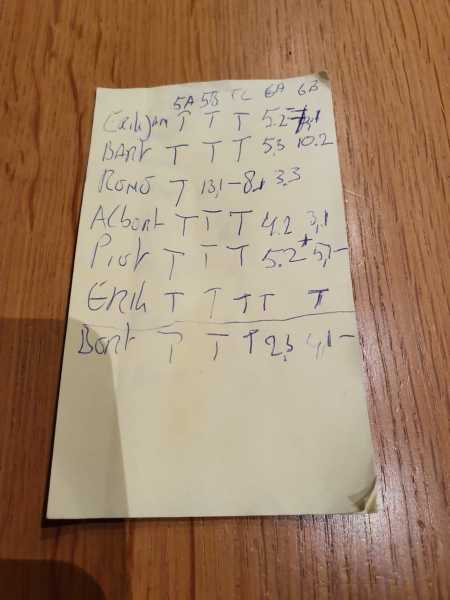 5A 5B 5C 6A 6B
T T T 5.2
BART T T T 5,3 10.2
REMO T 13,1- 8+ 3,3
Albert T T T 4.2 3,1
Piet T T T 5.2+ 5,1-
ERIK T T T T T
Bert T T T 2,3 4,1-